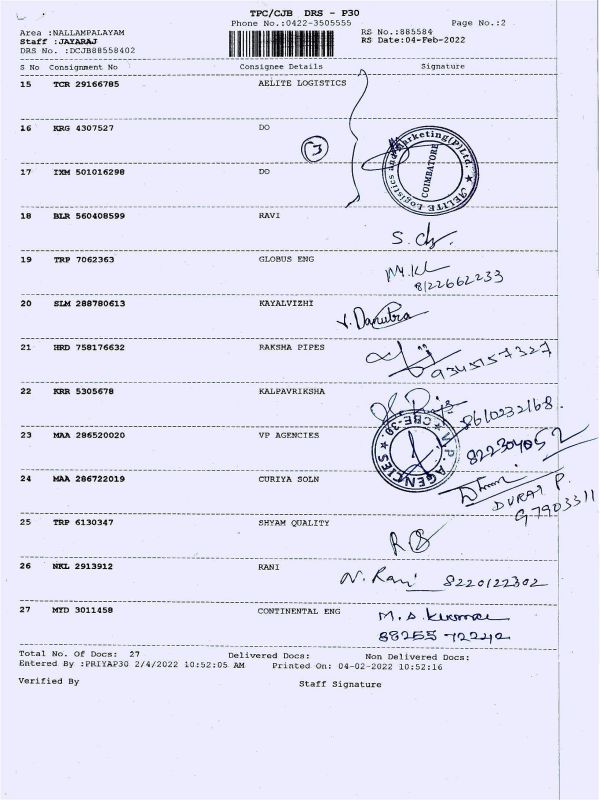 TPC/CJB DRS - P30
Phone No.:0422-3505555 Page No.:2
Area :NALLAMPALAYAM RS No.:885584
Staff :JAYARAJ RS Date:04-Feb-2022
DRS No. :DCJB88558402
S No Consignment No Consignee Details Signature
15 TCR 29166785 AELITE LOGISTICS
16 KRG 4307527 DO
3
17 IXM 501016298 DO
Aelite Logistics and Marketing(P)Ltd. ★
COIMBATORE
18 BLR 560408599 RAVI
19 TRP 7062363 GLOBUS ENG
8122662233
20 SLM 288780613 KAYALVIZHI
21 HRD 758176632 RAKSHA PIPES
9345157327
22 KRR 5305678 KALPAVRIKSHA
8610232168.
23 MAA 286520020 VP AGENCIES
V.P. AGENCIES ★ CBE-30. ★
24 MAA 286722019 CURIYA SOLN
DURAI P.
25 TRP 6130347 SHYAM QUALITY
26 NKL 2913912 RANI
N. Rani 8220122302
27 MYD 3011458 CONTINENTAL ENG
M.S. Kumar
88255 72242
Total No. Of Docs: 27 Delivered Docs: Non Delivered Docs:
Entered By :PRIYAP30 2/4/2022 10:52:05 AM Printed On: 04-02-2022 10:52:16
Verified By Staff Signature